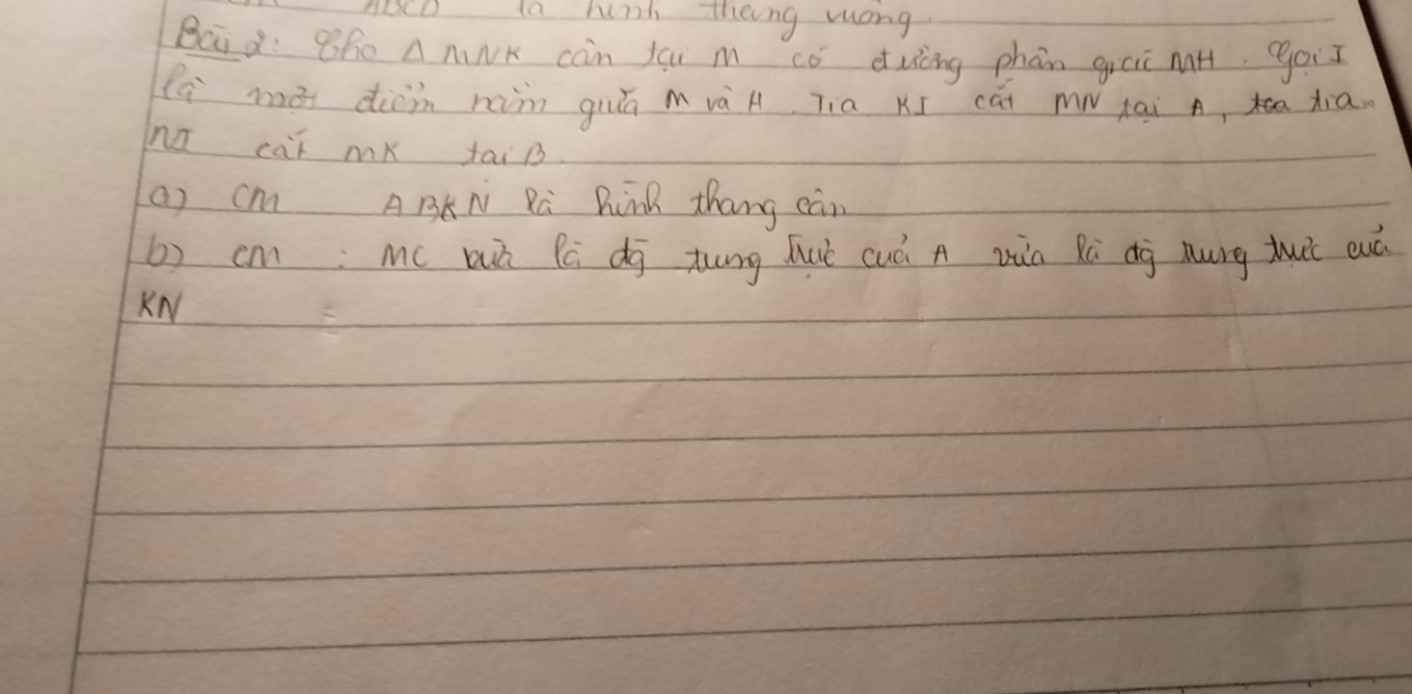 ABCD là hình thang vuông.
Bài 2: Cho Δ MNK cân tại M có đường phân giác MH. Gọi I
là một điểm nằm giữa M và H. Tia KI cắt MN tại A, tia
NI cắt MK tại B.
a) CM ABKN là hình thang cân
b) CM : MC vừa là đg trung trực của A vừa là đg trung trực của
KN